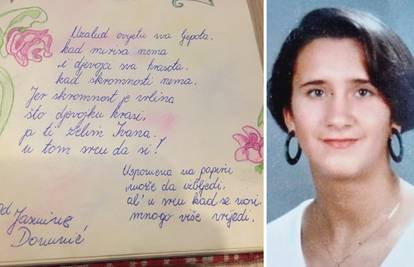 Uzalud cvijetu sva ljepota,
kad mirisa nema
i djevojci sva krasota,
kad skromnosti nema.
Jer skromnost je vrlina
što djevojku krasi,
pa ti želim Ivana
u tom srcu da si!
Uspomena na papiru
može da izblijedi,
al' u srcu kad se nosi
mnogo više vrijedi.
od Jasmine